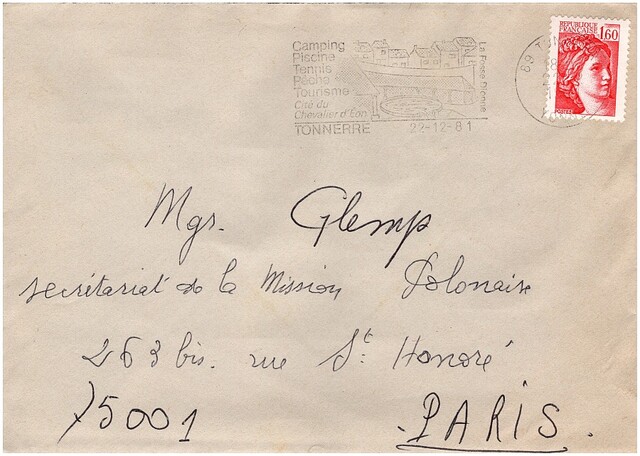 REPUBLIQUE
FRANÇAISE 1,60
Camping
Piscine
Tennis
Pêche
Tourisme
Cité du
Chevalier d'Eon
La Fosse Dionne
TONNERRE 22-12-81
89 TON
Mgr. Glemp
secrétariat de la Mission Polonaise
263 bis. rue St. Honoré
75001 . PARIS .